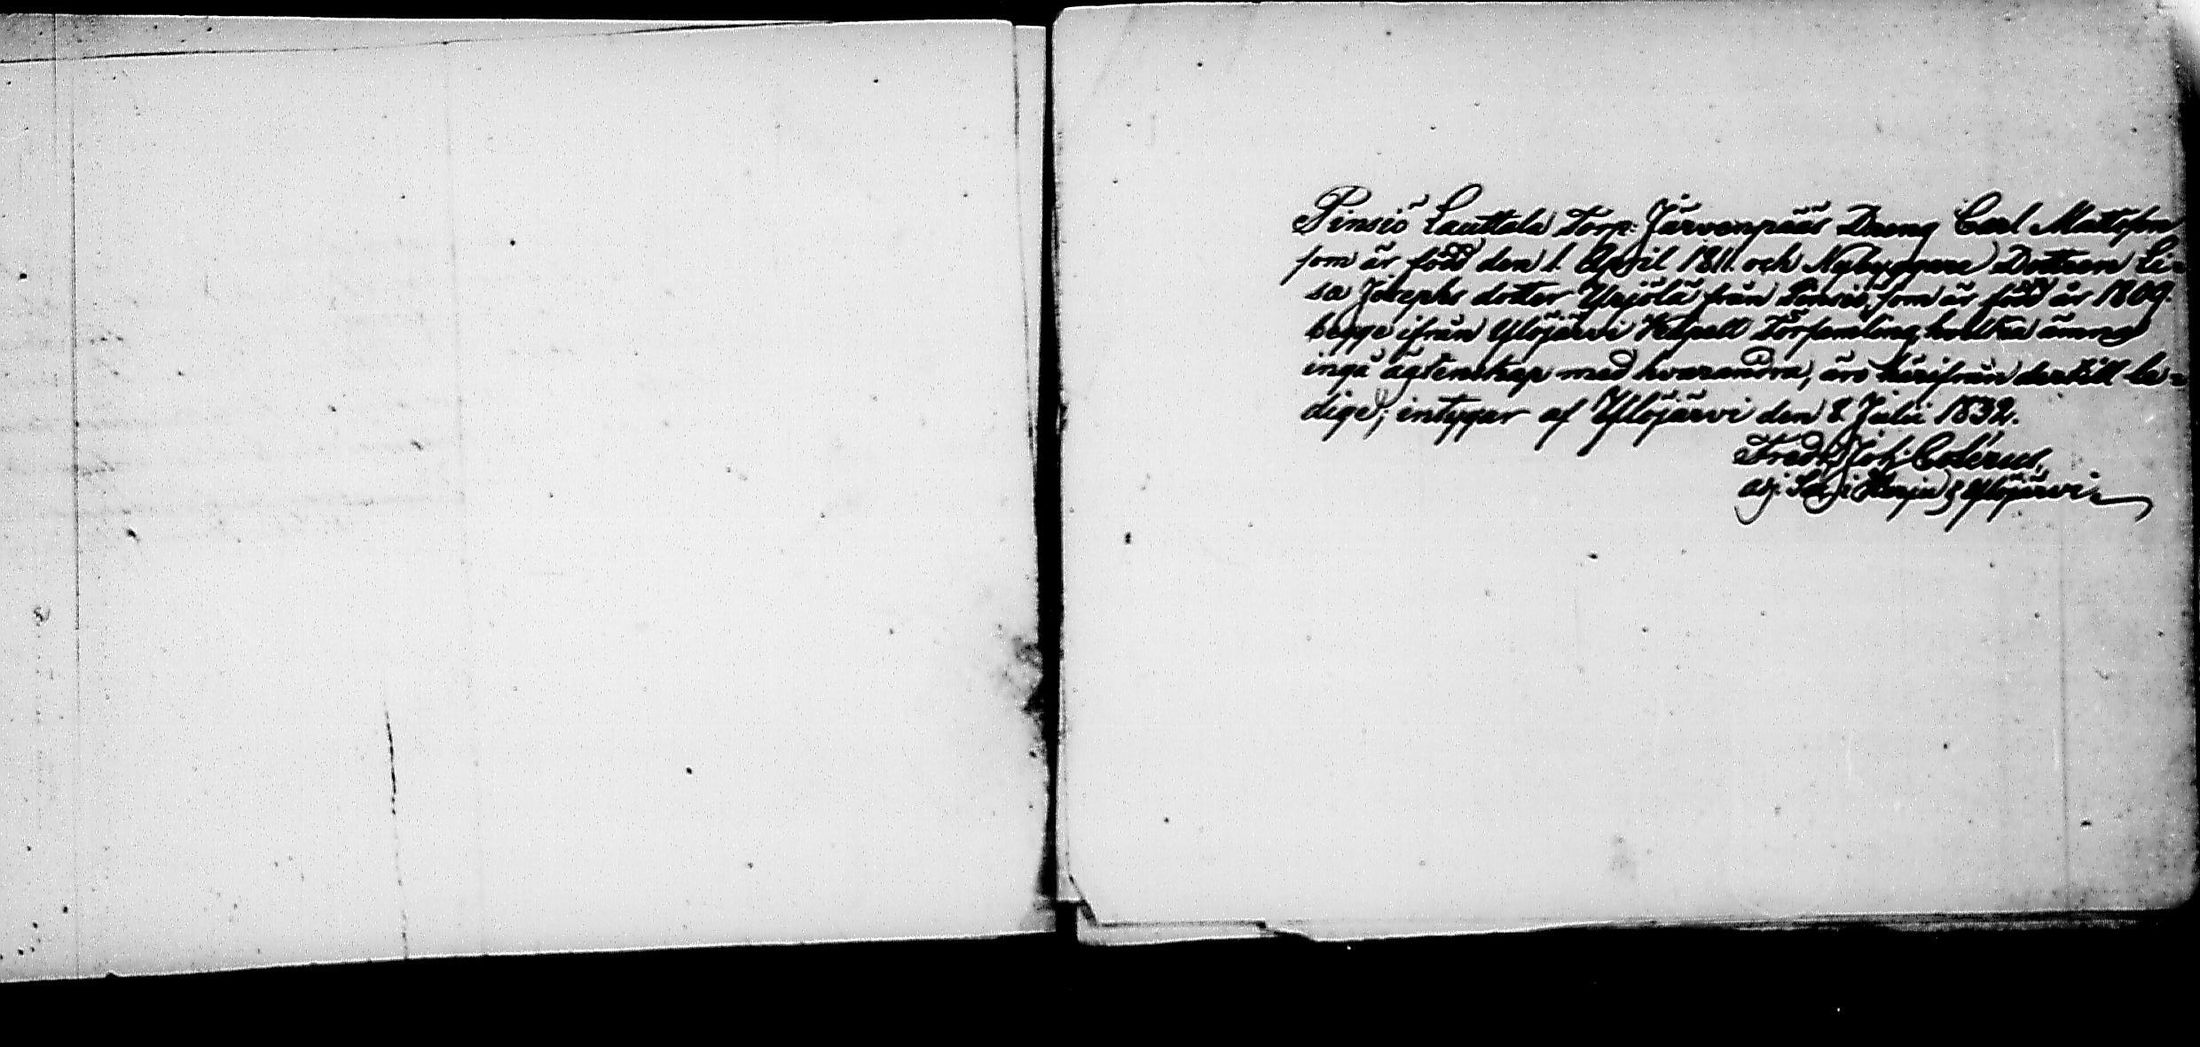 Pinsiö Lauttala Torp: Järvenpääs Dreng Carl Matsson
som är född den 1. April 1811. och Nybyggare Dottren Li-
sa Josephs dotter Yrjölä från Pinsiö, som är född år 1809.
begge ifrån Ylöjärvi Kapell Församling, hvilka ämna
ingå ägtenskap med hvarandra, äro härifrån dertill le-
dige; intygar af Ylöjärvi den 8 Julii 1832.
Fredr. Joh: Colérus,
adj. Ylöjärvi